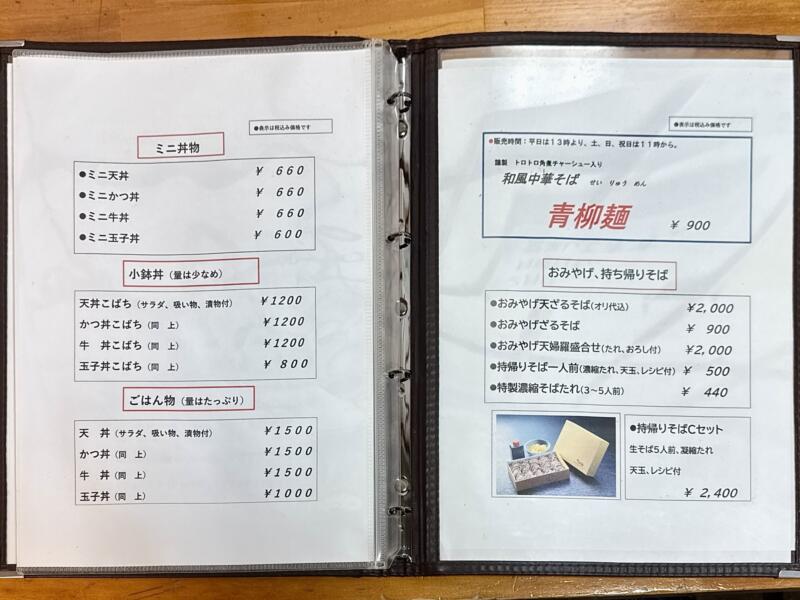 ●表示は税込み価格です
ミニ丼物
●ミニ天丼 ¥ 660
●ミニかつ丼 ¥ 660
●ミニ牛丼 ¥ 660
●ミニ玉子丼 ¥ 600
小鉢丼(量は少なめ)
天丼こばち(サラダ、吸い物、漬物付) ¥1200
かつ丼こばち(同 上) ¥1200
牛 丼こばち(同 上) ¥1200
玉子丼こばち(同 上) ¥ 800
ごはん物(量はたっぷり)
天 丼(サラダ、吸い物、漬物付) ¥1500
かつ丼(同 上) ¥1500
牛 丼(同 上) ¥1500
玉子丼(同 上) ¥1000
●表示は税込み価格です
●販売時間:平日は13時より、土、日、祝日は11時から。
謹製 トロトロ角煮チャーシュー入り
和風中華そば せい りゅう めん
青柳麺 ¥ 900
おみやげ、持ち帰りそば
●おみやげ天ざるそば(オリ代込) ¥2,000
●おみやげざるそば ¥ 900
●おみやげ天婦羅盛合せ(たれ、おろし付) ¥2,000
●持帰りそば一人前(濃縮たれ、天玉、レシピ付) ¥ 500
●特製濃縮そばたれ(3~5人前) ¥ 440
●持帰りそばCセット
生そば5人前、凝縮たれ
天玉、レシピ付
¥ 2,400